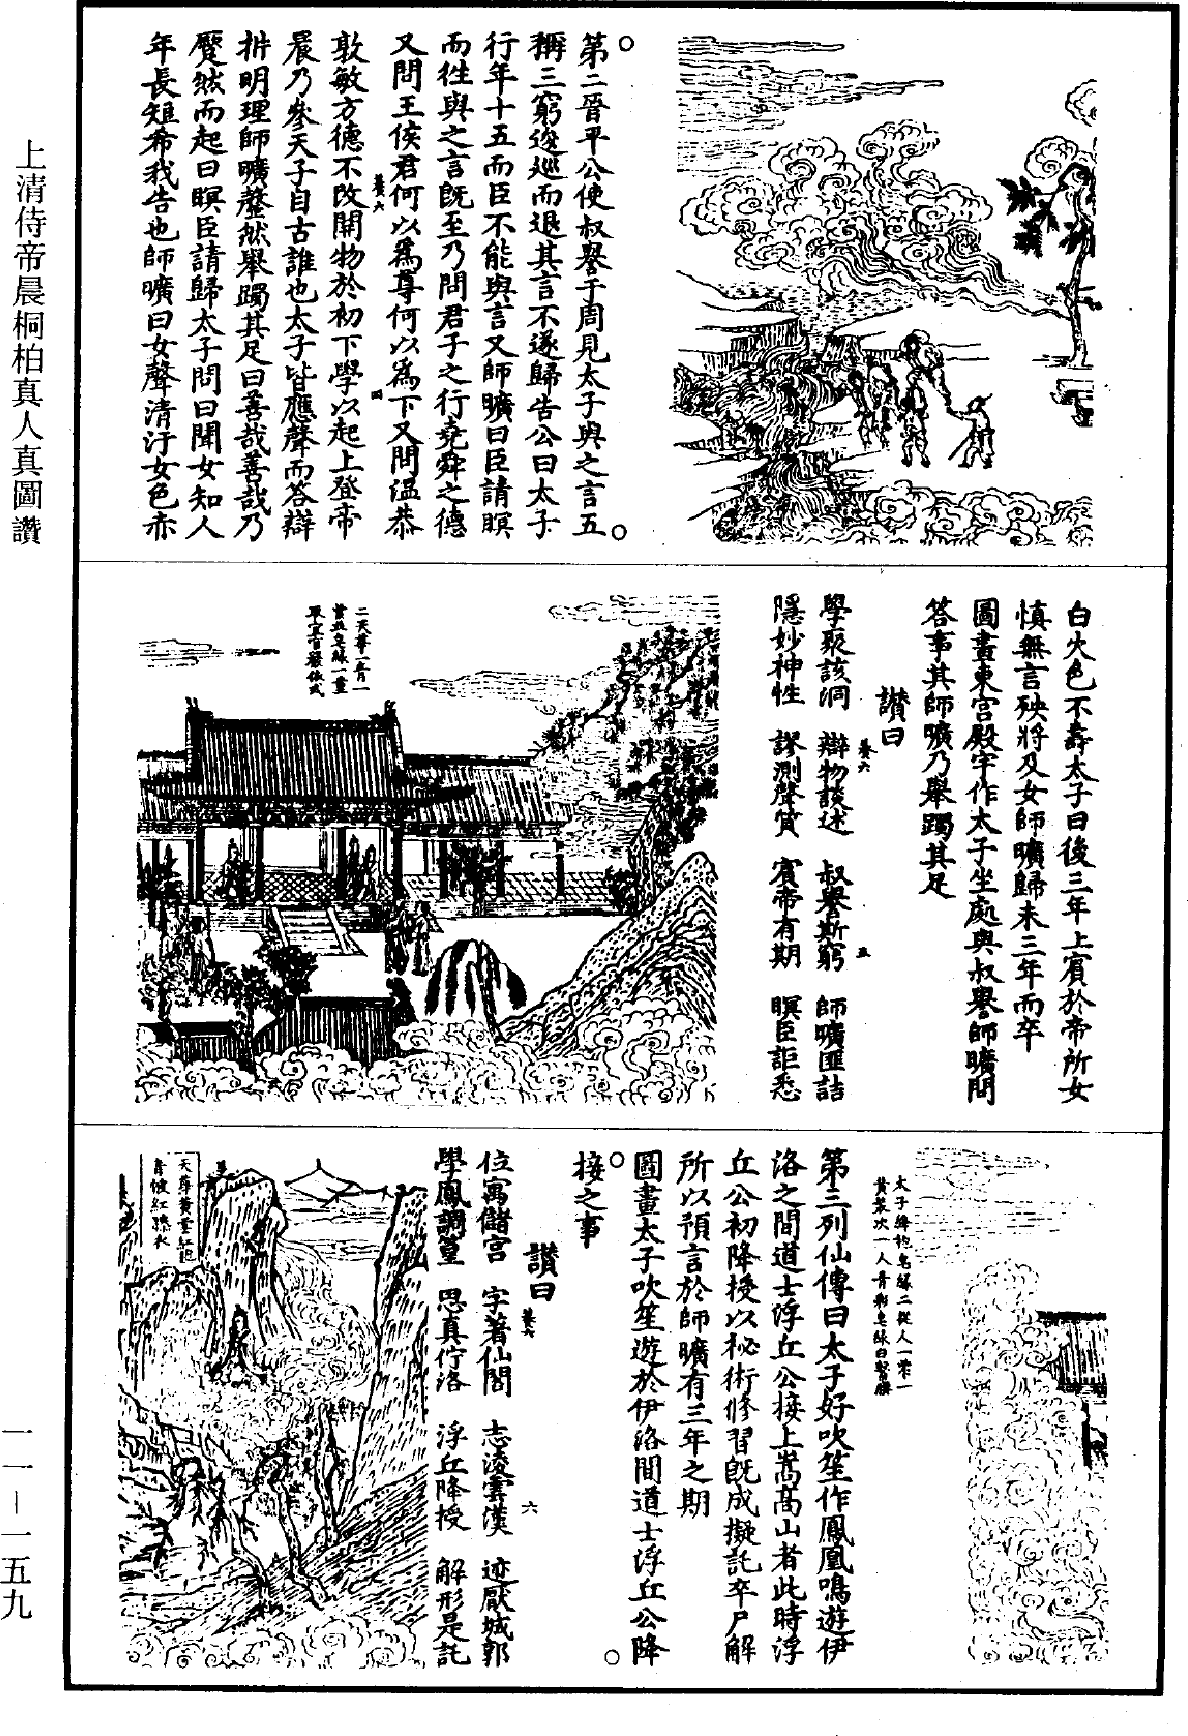 上清侍帝晨桐柏真人真圖讚
第二晉平公使叔譽于周見太子與之言五
稱三窮逡巡而退其言不遂歸告公曰太子
行年十五而臣不能與言又師曠曰臣請瞑
而往與之言既至乃問君子之行堯舜之德
又問王侯君何以爲尊何以爲下又問溫恭
敦敏方德不改開物於初下學以起上登帝
晨乃參天子自古誰也太子皆應聲而答辯
析明理師曠罄然舉躅其足曰善哉善哉乃
蹷然而起曰瞑臣請歸太子問曰聞女知人
年長短希我告也師曠曰女聲清汙女色亦
白火色不壽太子曰後三年上賓於帝所女
慎無言殃將及女師曠歸未三年而卒
圖畫東宮殿宇作太子坐處與叔譽師曠問
答事其師曠乃舉躅其足
讚曰
學聚該洞 辯物談述 叔譽斯窮 師曠匪詰
隱妙神性 謬測聲質 賓帝有期 瞑臣詎悉
太子緋袍皂緣二從人一紫一
黃裳次一人青衫皂緣白繫膝
第三列仙傳曰太子好吹笙作鳳凰鳴遊伊
洛之間道士浮丘公接上嵩高山者此時浮
丘公初降授以祕術修習既成擬託卒尸解
所以預言於師曠有三年之期
圖畫太子吹笙遊於伊洛間道士浮丘公降
接之事
讚曰
位寓儲宮 字著仙閣 志淩雲漢 迹厭城郭
學鳳調篁 思真佇洛 浮丘降授 解形是託
一一-一五九